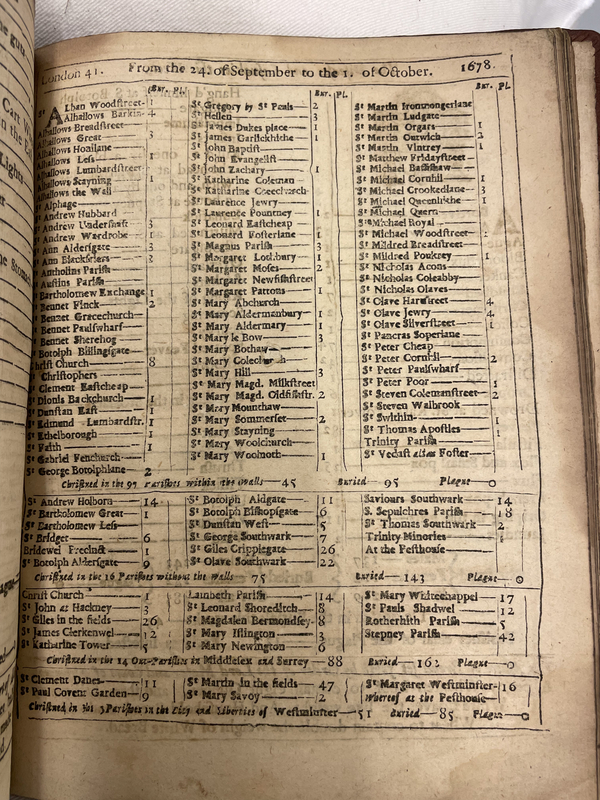 London 41. From the 24. of September to the 1. of October. 1678.
Bur. Pl.
St Alban Woodſtreet- 1
Alhallows Barkin- 4
Alhallows Breadſtreet-
Alhallows Great 3
Alhallows Honilane
Alhallows Leſs 1
Alhallows Lumbardſtreet-
Alhallows Stayning 1
Alhallows the Wall
St Alphage
St Andrew Hubbard
St Andrew Underſhaft 3
St Andrew Wardrobe 1
St Ann Alderſgate 3
St Ann Blackfriers 3
St Antholins Pariſh
St Auſtins Pariſh
St Bartholomew Exchange 1
St Bennet Finck 2
St Bennet Gracechurch
St Bennet Paulſwharf
St Bennet Sherehog
St Botolph Billingſgate
Chriſt Church 8
St Chriſtophers
St Clement Eaſtcheap
St Dionis Backchurch 1
St Dunſtan Eaſt 1
St Edmund Lumbardſtr. 1
St Ethelborough 1
St Faith 1
St Gabriel Fenchurch
St George Botolphlane 2
Bur. Pl.
St Gregory by St Pauls 2
St Hellen 3
St James Dukes place 1
St James Garlickhithe 1
St John Baptiſt
St John Evangeliſt
St John Zachary 1
St Katharine Coleman
St Katharine Creechurch
St Laurence Jewry
St Laurence Pountney 1
St Leonard Eaſtcheap
St Leonard Foſterlane 1
St Magnus Pariſh 3
St Margaret Lothbury 1
St Margaret Moſes 2
St Margaret Newfiſhſtreet
St Margaret Pattons 1
St Mary Abchurch
St Mary Aldermanbury 1
St Mary Aldermary 1
St Mary le Bow 3
St Mary Bothaw
St Mary Colechurch
St Mary Hill 3
St Mary Magd. Milkſtreet
St Mary Magd. Oldfiſhſtr. 2
St Mary Mounthaw
St Mary Sommerſet 2
St Mary Stayning
St Mary Woolchurch
St Mary Woolnoth 1
Bur. Pl.
St Martin Ironmongerlane
St Martin Ludgate
St Martin Orgars 1
St Martin Outwich 2
St Martin Vintrey 1
St Matthew Fridayſtreet
St Michael Baſſiſhaw
St Michael Cornhill 1
St Michael Crookedlane 3
St Michael Queenhithe 1
St Michael Quern
St Michael Royal
St Michael Woodſtreet
St Mildred Breadſtreet
St Mildred Poultrey 1
St Nicholas Acons
St Nicholas Coleabby
St Nicholas Olaves
St Olave Hartſtreet 4
St Olave Jewry 4
St Olave Silverſtreet 1
St Pancras Soperlane
St Peter Cheap
St Peter Cornhil 2
St Peter Paulſwharf
St Peter Poor 1
St Steven Colemanſtreet 2
St Steven Walbrook
St Swithin
St Thomas Apoſtles 1
Trinity Pariſh
St Vedaſt alias Foſter
Chriſtned in the 97 Pariſhes within the Walls 45 Buried 95 Plague 0
St Andrew Holborn 14
St Bartholomew Great 1
St Bartholomew Leſs
St Bridget 6
Bridewel Precinct 1
St Botolph Alderſgate 9
St Botolph Aldgate 11
St Botolph Biſhopſgate 6
St Dunſtan Weſt 5
St George Southwark 7
St Giles Cripplegate 26
St Olave Southwark 22
Saviours Southwark 14
S. Sepulchres Pariſh 18
St Thomas Southwark 2
Trinity Minories 1
At the Peſthouſe
Chriſtned in the 16 Pariſhes without the Walls 75 Buried 143 Plague 0
Chriſt Church 1
St John at Hackney 3
St Giles in the fields 26
St James Clerkenwel 12
St Katharine Tower 5
Lambeth Pariſh 14
St Leonard Shoreditch 8
St Magdalen Bermondſey 8
St Mary Iſlington 3
St Mary Newington 6
St Mary Whitechappel 17
St Pauls Shadwel 12
Rotherhith Pariſh 5
Stepney Pariſh 42
Chriſtned in the 14 Out-Pariſhes in Middleſex and Surrey 88 Buried 162 Plague 0
St Clement Danes 11
St Paul Covent Garden 9
St Martin in the fields 47
St Mary Savoy 2
St Margaret Weſtminſter 16
Whereof at the Peſthouſe
Chriſtned in the 5 Pariſhes in the City and Liberties of Weſtminſter 51 Buried 85 Plague 0